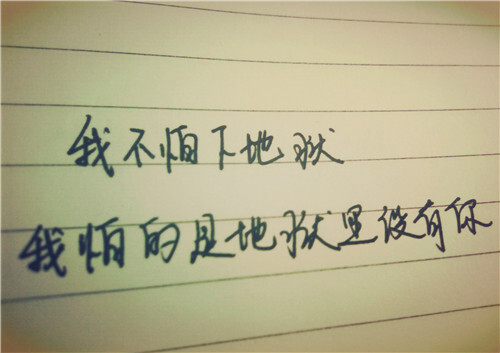 我不怕下地狱
我怕的是地狱里没有你